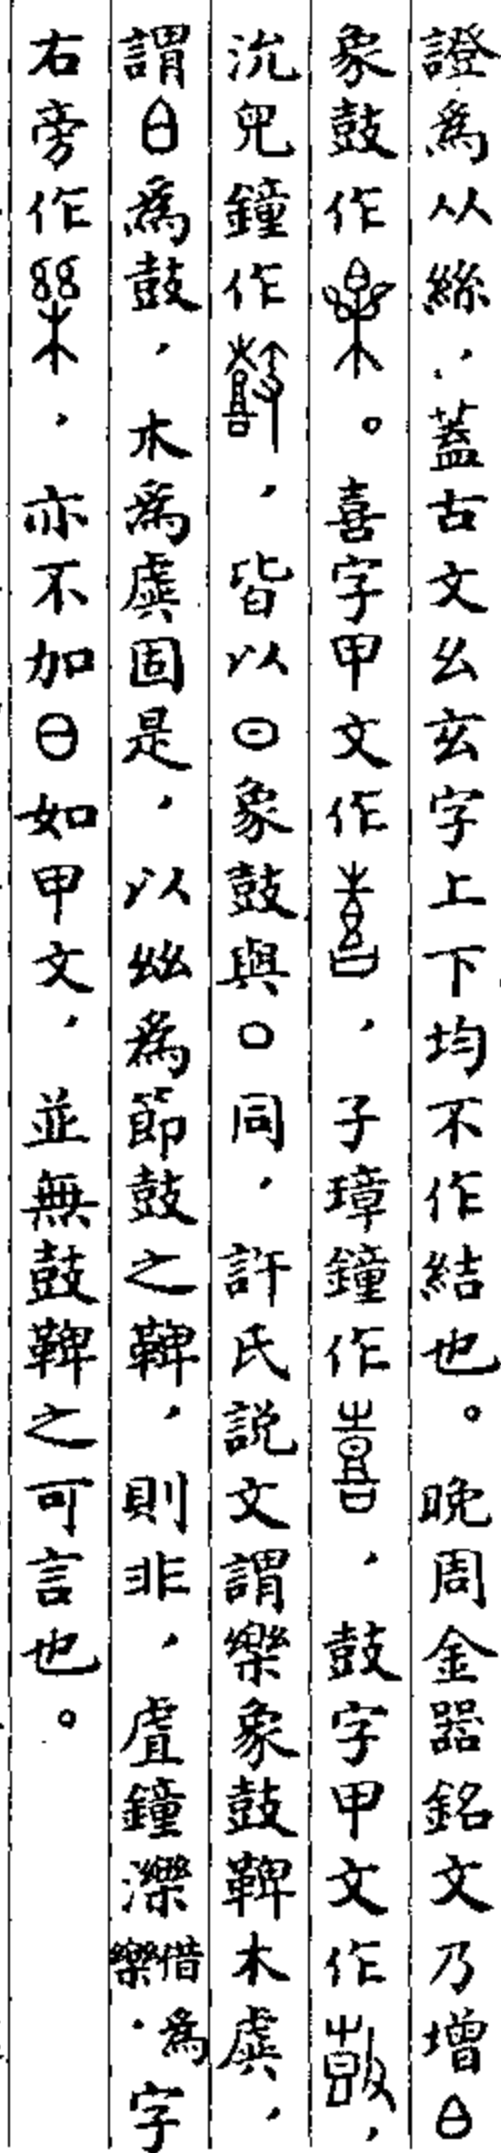 證為从絲，蓋古文幺玄字上下均不作結也。晚周金器銘文乃增
象鼓作。喜字甲文作，子璋鐘作，鼓字甲文作，
沇兒鐘作，皆以象鼓與同，許氏說文謂樂象鼓鞞木虡，
謂為鼓，木為虡固是，以𢆶為節鼓之鞞，則非，虘鐘濼借為樂．字
右旁作，亦不加如甲文，並無鼓鞞之可言也。